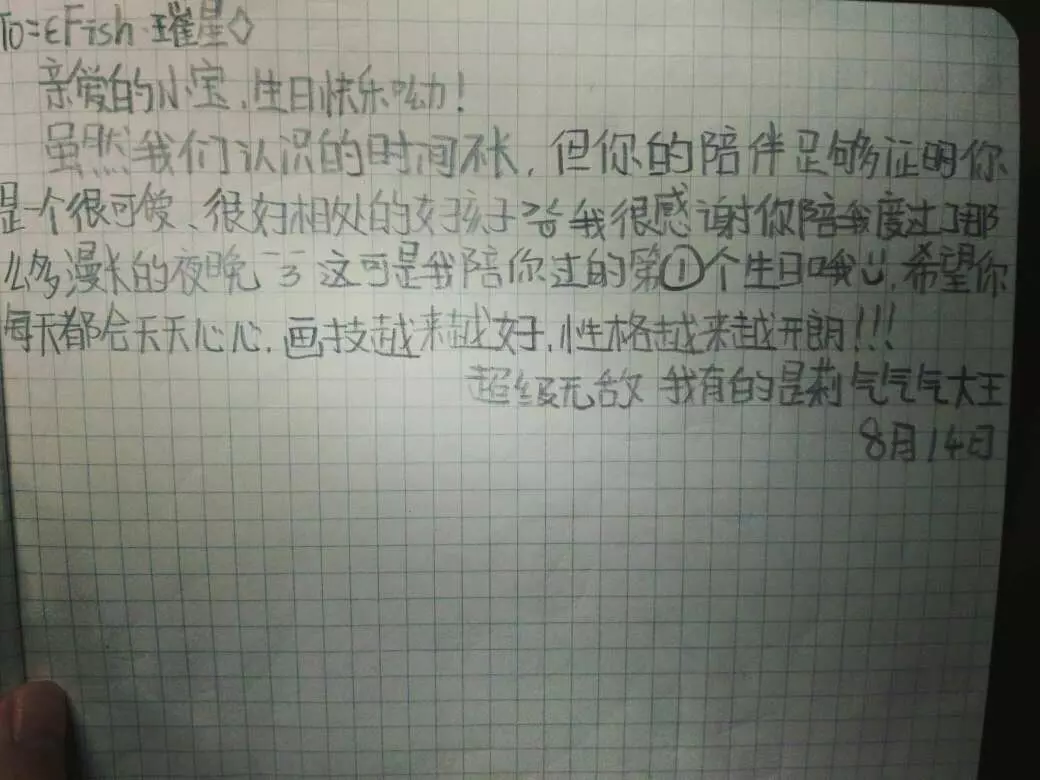 To=εFish·璀星◇
亲爱的小宝、生日快乐呦！
虽然我们认识的时间不长，但你的陪伴足够证明你
是一个很可爱、很好相处的女孩子 我很感谢你陪我度过了那
么多漫长的夜晚 这可是我陪你过的第①个生日哦，希望你
每天都会天天心心，画技越来越好，性格越来越开朗！！！
超级无敌 我有的是刺气气气大王
8月14日